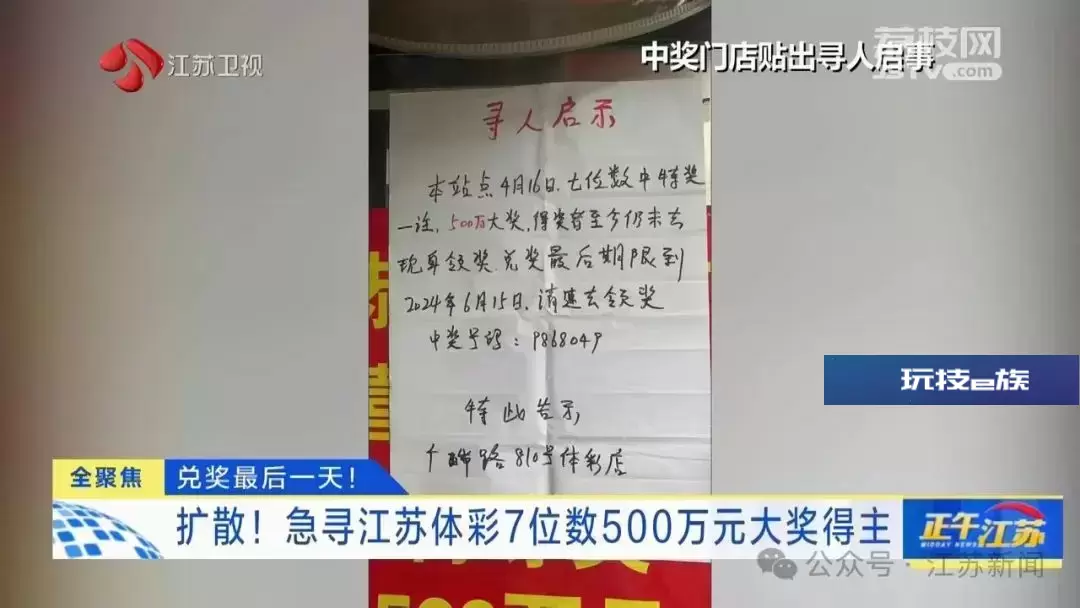 江苏卫视
荔枝网
JSTV.com
中奖门店贴出寻人启事
寻人启示
本站点4月16日.七位数中特奖
一注,500万大奖,得奖者至今仍未去
现身领奖.兑奖最后期限到
2024年6月15日.请速去领奖
中奖号码:9868049
特此告示
810号体彩店
玩技e族
全聚焦
兑奖最后一天!
扩散!急寻江苏体彩7位数500万元大奖得主
正午江苏
MIDDAY NEWS
公众号·江苏新闻